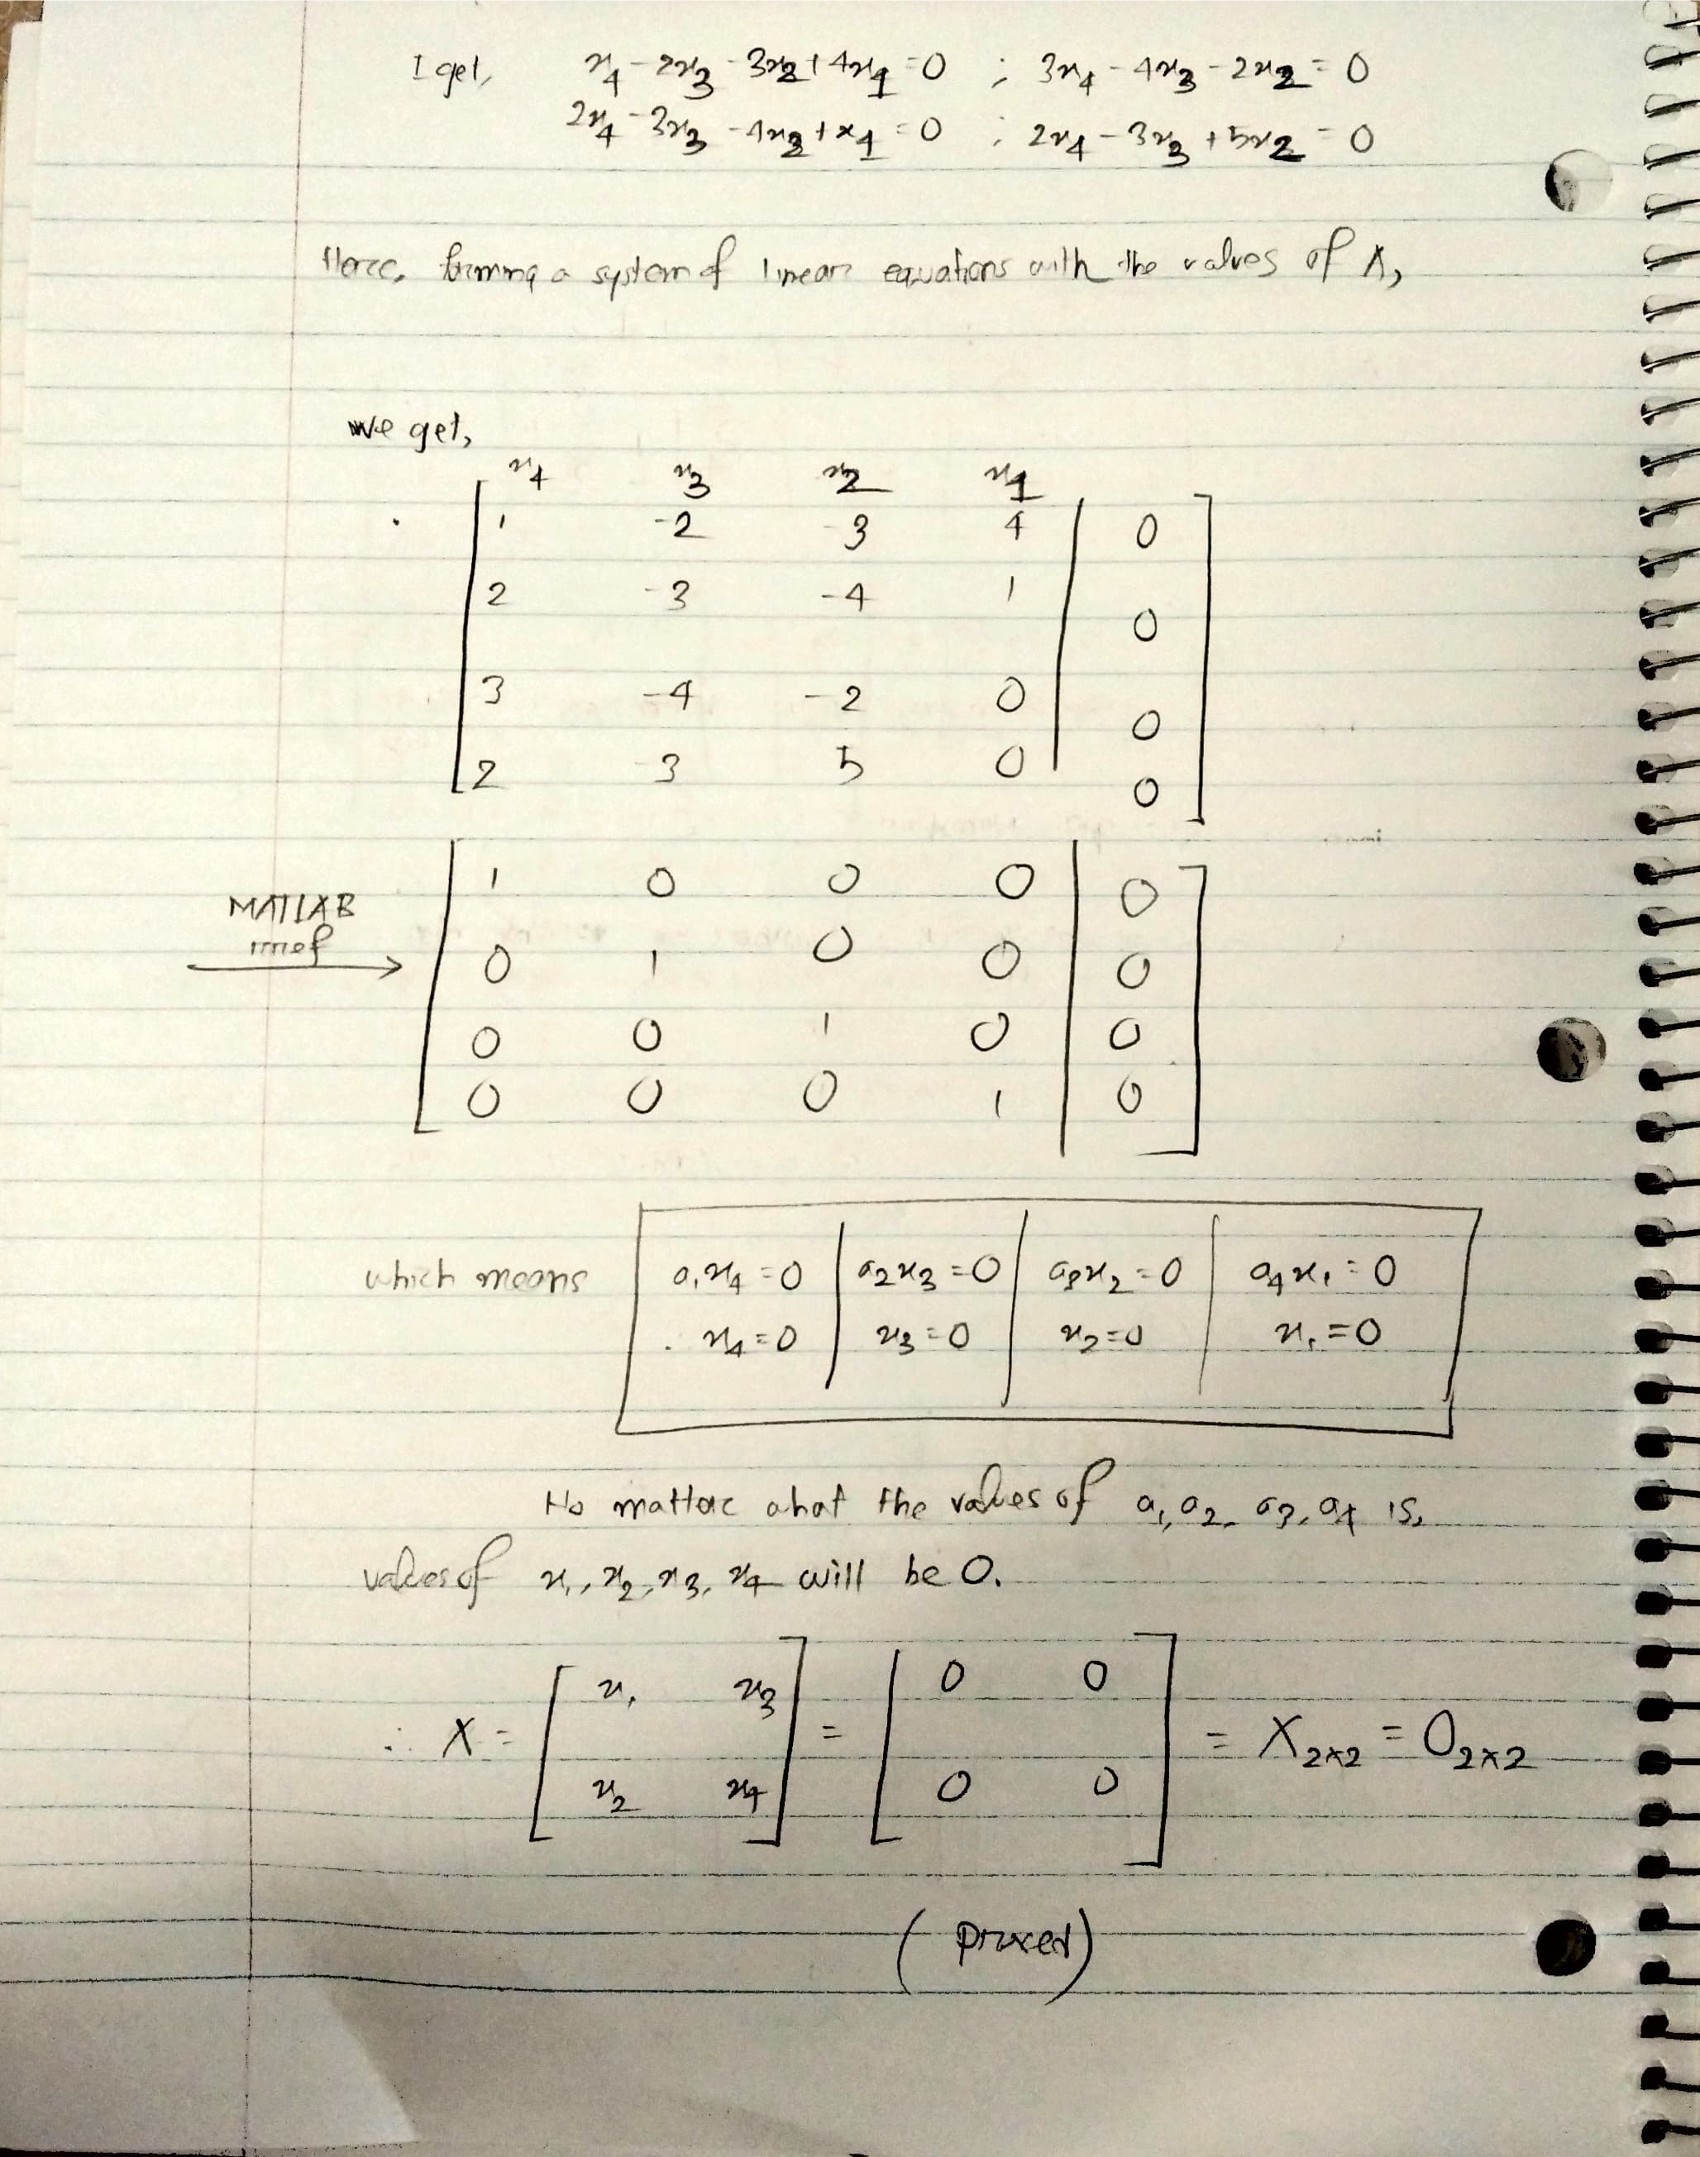 I get, x₄ - 2x₃ - 3x₂ + 4x₁ = 0 ; 3x₄ - 4x₃ - 2x₂ = 0
2x₄ - 3x₃ - 4x₂ + x₁ = 0 ; 2x₄ - 3x₃ + 5x₂ = 0
Here, forming a system of linear equations with the values of A,
we get,
x₄ x₃ x₂ x₁
1 -2 -3 4 | 0
2 -3 -4 1 | 0
3 -4 -2 0 | 0
2 -3 5 0 | 0
MATLAB
rref
1 0 0 0 | 0
0 1 0 0 | 0
0 0 1 0 | 0
0 0 0 1 | 0
which means a₁x₄ = 0 | a₂x₃ = 0 | a₃x₂ = 0 | a₄x₁ = 0
x₄ = 0 | x₃ = 0 | x₂ = 0 | x₁ = 0
No matter what the values of a₁, a₂, a₃, a₄ is,
values of x₁, x₂, x₃, x₄ will be 0.
∴ X = [x₁ x₃ = [0 0 = X₂ₓ₂ = O₂ₓ₂
x₂ x₄] 0 0]
(proved)